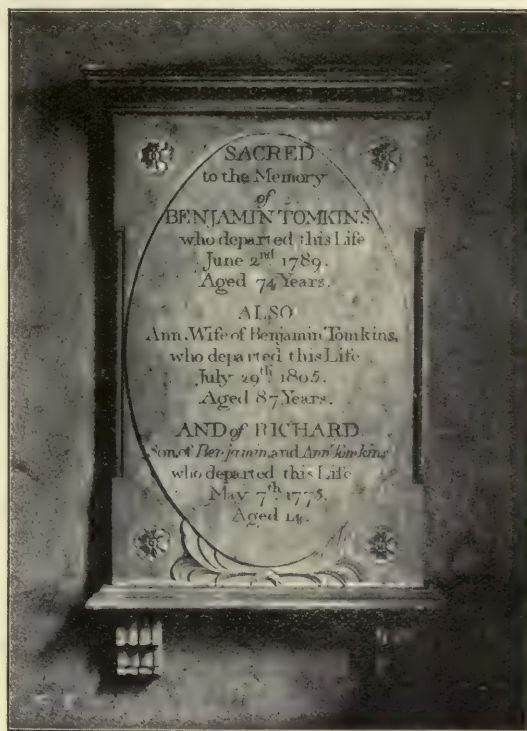 SACRED
to the Memory
of
BENJAMIN TOMKINS
who departed this Life
June 2nd 1789.
Aged 74 Years.
ALSO
Ann Wife of Benjamin Tomkins,
who departed this Life
July 29th 1805.
Aged 87 Years.
AND of RICHARD
Son of Benjamin and Ann Tomkins
who departed this Life
May 7th 1775.
Aged 14.